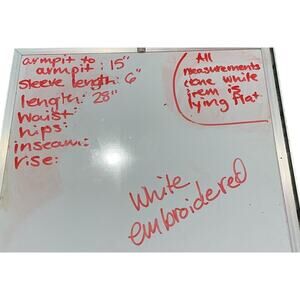 armpit to
armpit: 15"
sleeve length: 6"
length: 28"
waist:
hips:
inseam:
rise:
All
measurements
done white
item is
lying flat
White
embroidered